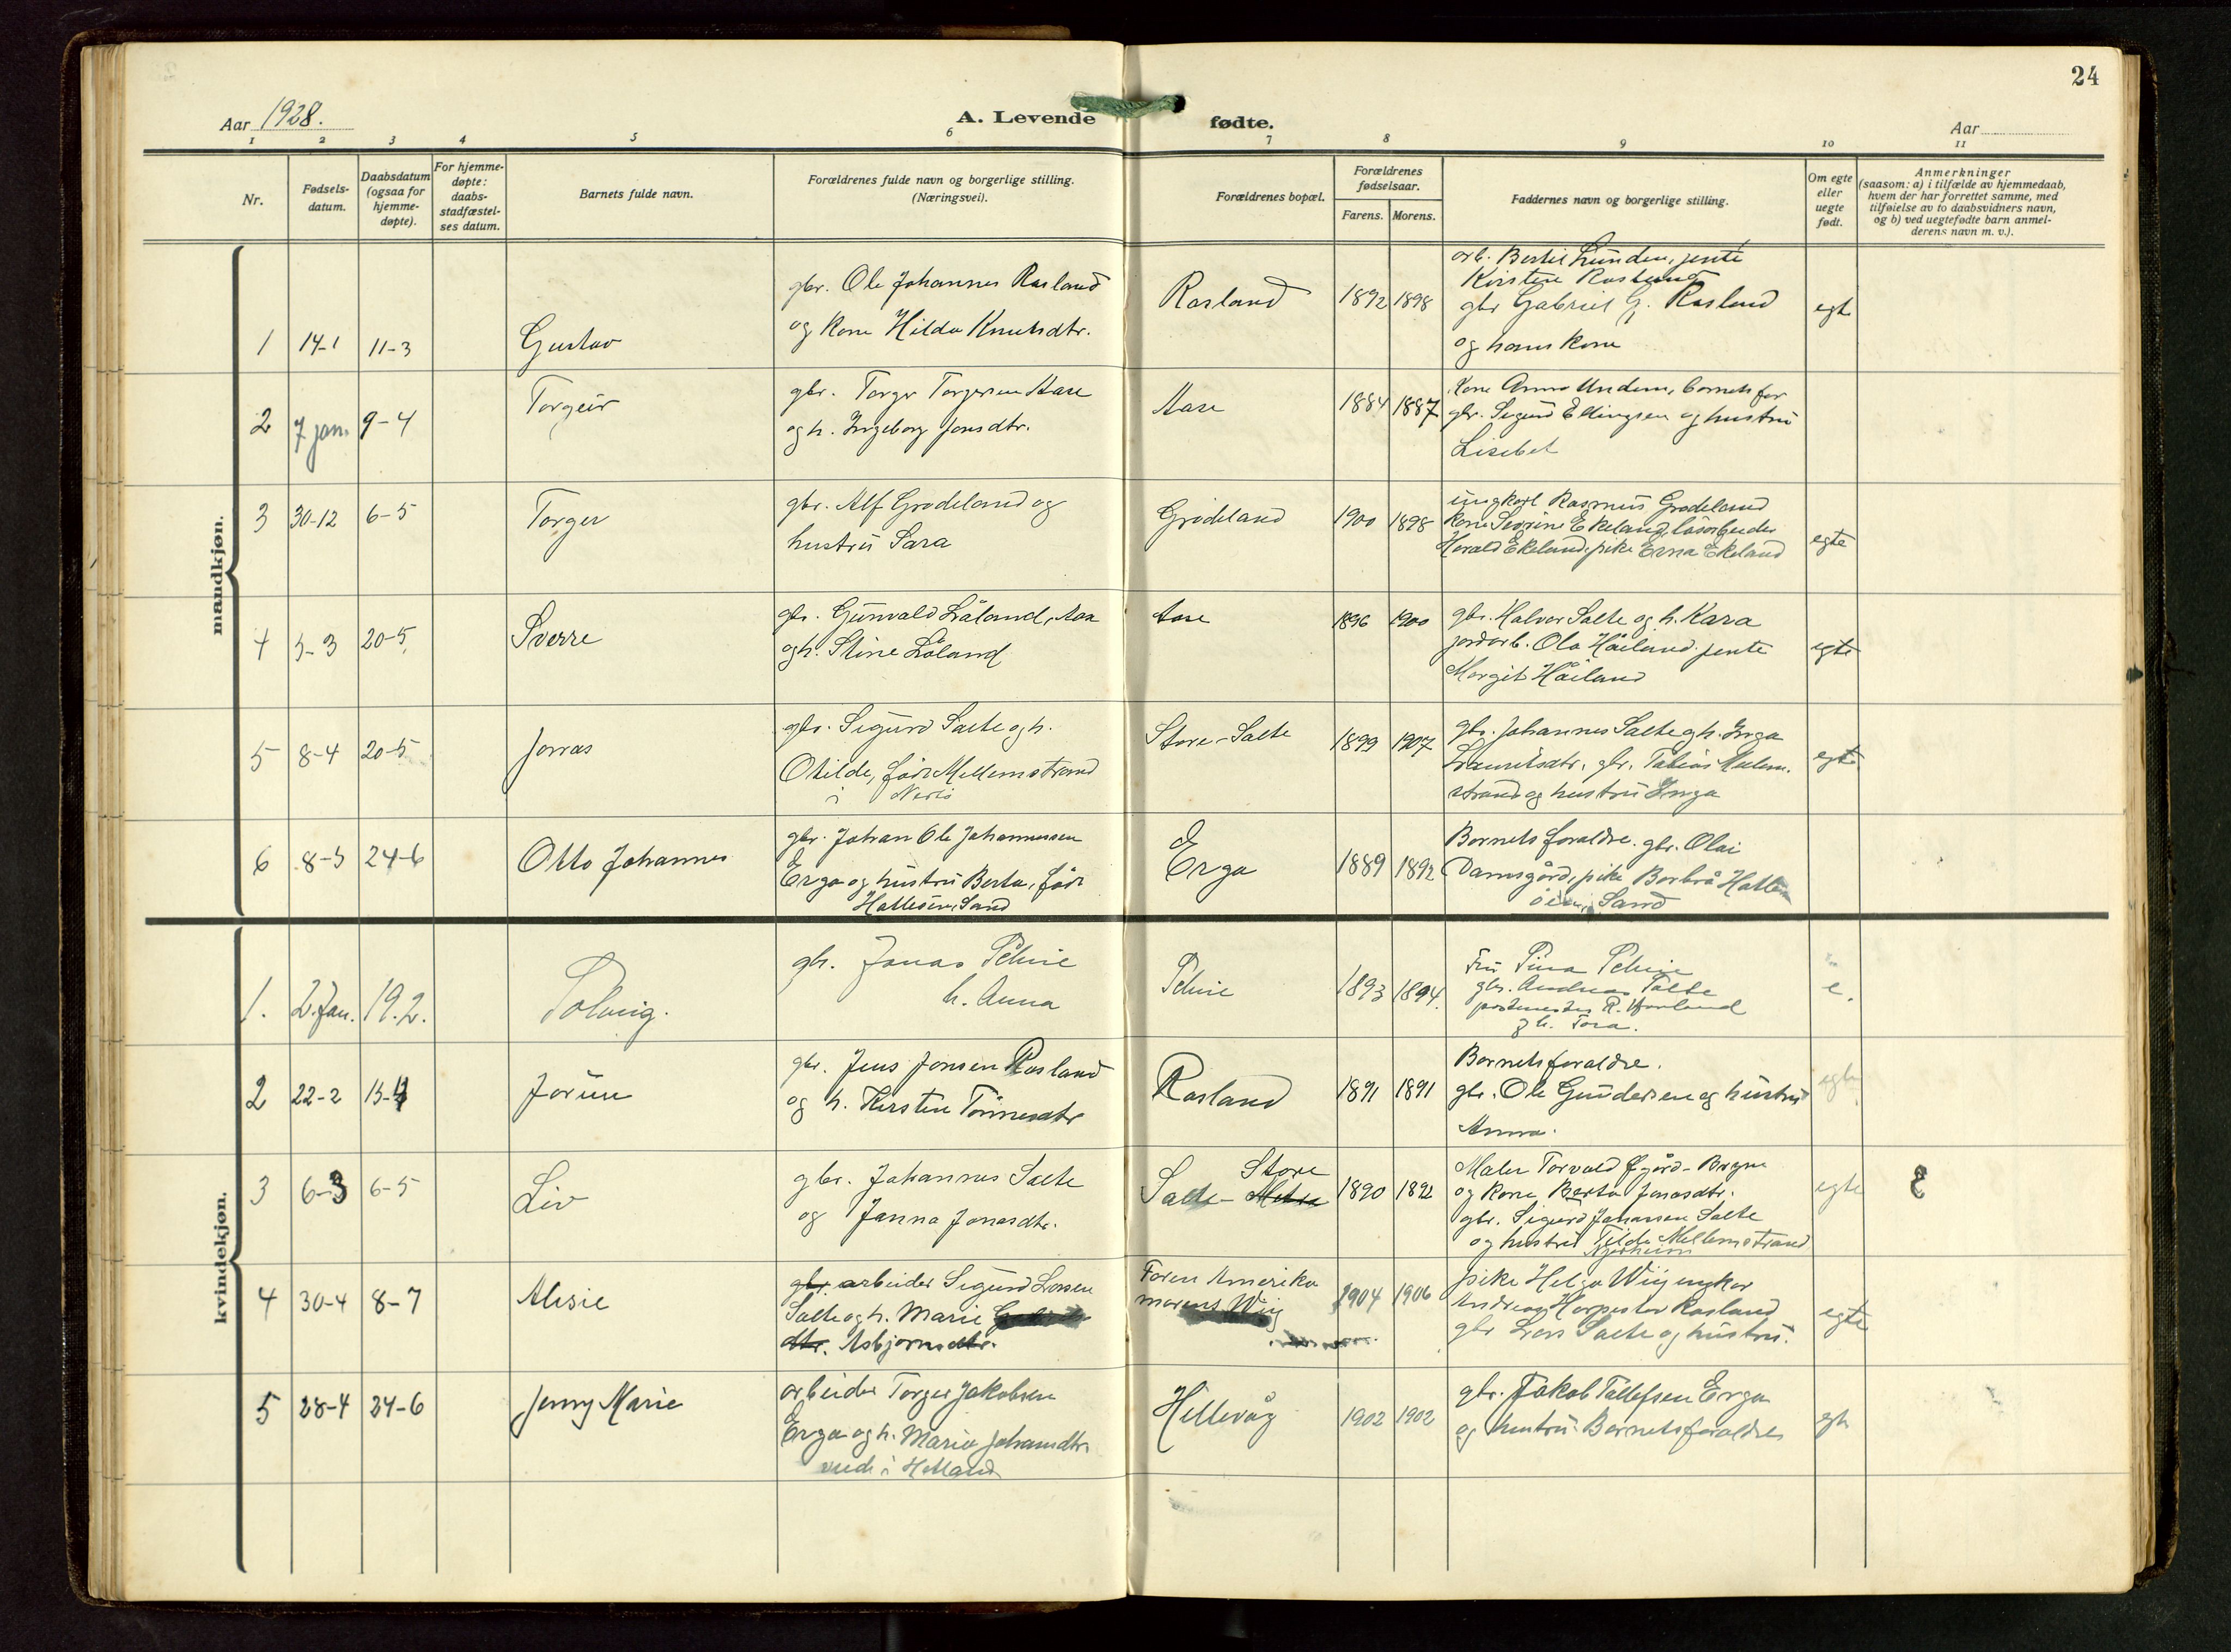 24
Aar 1928.
A. Levende fødte.
Aar
1 2 3 4 5 6 7 8 9 10 11
Nr.
Fødsels-
datum.
Daabsdatum
(ogsaa for
hjemme-
døpte).
For hjemme-
døpte:
daabs-
stadfæstel-
ses datum.
Barnets fulde navn.
Forældrenes fulde navn og borgerlige stilling.
(Næringsvei).
Forældrenes bopæl.
Forældrenes
fødselsaar.
Farens. Morens.
Faddernes navn og borgerlige stilling.
Om egte
eller
uegte
født.
Anmerkninger
(saasom: a) i tilfælde av hjemmedaab,
hvem der har forrettet samme, med
tilføielse av to daabsvidners navn,
og b) ved uegtefødte barn anmel-
derens navn m. v.).
mandkjøn.
1 14-1 11-3 Gustav
gbr. Ole Johannes Rosland
og kone Hilda Knutsdtr.
Rosland 1892 1898
arb. Bertil Lunden, jente
Kirsten Rosland
gbr Gabriel G. Rosland
og hans kone
egt
2 7 jan. 9-4 Torgeir
gbr. Torger Torgersen Aase
og h. Ingeborg Jonsdtr.
Aase 1884 1887
Kone Anna Undem, barnets far
gbr. Sigurd Ellingsen og hustru
Lisebet
3 30-12 6-5 Torger
gbr. Alf Grødeland og
hustru Sara
Grødeland 1900 1898
ungkarl Rasmus Grødeland
kone Severine Ekeland, løsarbeider
Harald Ekeland, pike Erna Ekeland
egte
4 3-3 20-5 Sverre
gbr. Gunvald Låland, Aase
og h. Stine Låland
Aase 1896 1900
gbr. Halvor Salte og h. Kara
jordarb. Ola Håiland jente
Margit Håiland
egte
5 8-4 20-5 Jonas
gbr. Sigurd Salte og h.
Otilde, født Mellemstrand
i
Store-Salte 1899 1907
gbr. Johannes Salte og h. Inga
Lauritsdtr. gbr. Tobias Mellem-
strand og hustru Inga
egte
6 8-5 24-6 Otto Johannes
gbr. Johan Ole Johannessen
Erga og hustru Berta, født
Hatløien, Sand
Erga 1889 1892
Barnets foraldre. gbr. Olai
Damsgård, pike Borbrå Hatle
øien, Sand
kvindekjøn.
1. 2. Jan. 19.2. Solveig.
gbr. Jonas Tchie
h. Anna
1893 1894.
Fru Tina
gbr. Andreas Salte
postmester R. Norland
g h. Tora.
e.
2 22-2 15-4 Jorun
gbr. Jens Jonsen Rosland
og h. Kirsten Tønnesdtr
Rosland 1891 1891
Barnets foraldre.
gbr. Ole Gundersen og hustru
Anna.
egte
3 6-3 6-5 Liv
gbr. Johannes Salte
og Janna Jonasdtr.
Store
Salte- 1890 1892
Maler Torvald Øgård-Bryne
og kone Berta Jonasdtr.
gbr. Sigurd Johansen Salte
og hustru Tilda Mellemstrand
egte
4 30-4 8-7 Alvsie
gbr. arbeider Sigurd Larsen
Salte og h. Marie
dtr. Asbjørnsdtr.
Faren Amerika
morens Wiig
1904 1906
pike Helga Wiig ungkar
Andreas Harpestav Rosland
gbr Lars Salte og hustru.
egte
5 28-4 24-6 Jenny Marie
arbeider Torger Jakobsen
Erga og h. Maria Johansdtr.
Hillevåg 1902 1902
gbr. Jakob Tollefsen Erga
og hustru. Barnets foraldre
egte